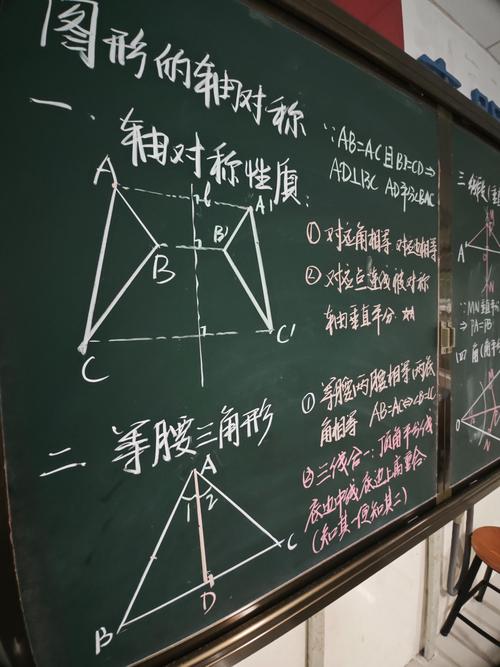 图形的轴对称
一、轴对称性质:
A
l
A'
B
B'
C
C'
∵AB=AC且BD=CD⇒
AD⊥BC AD平分∠BAC
① 对应角相等 对应边相等
② 对应点连线被对称
轴垂直平分
二 等腰三角形
A
1 2
B
D
C
① 等腰两腰相等(两底
角相等 AB=AC⇔∠B=∠C
② 三线合一:顶角平分线
底边中线 底边上高重合
(知其一便知其二)
三
A
N
∵MN垂直平分
⇒PA=PB
四 角(角平分
N